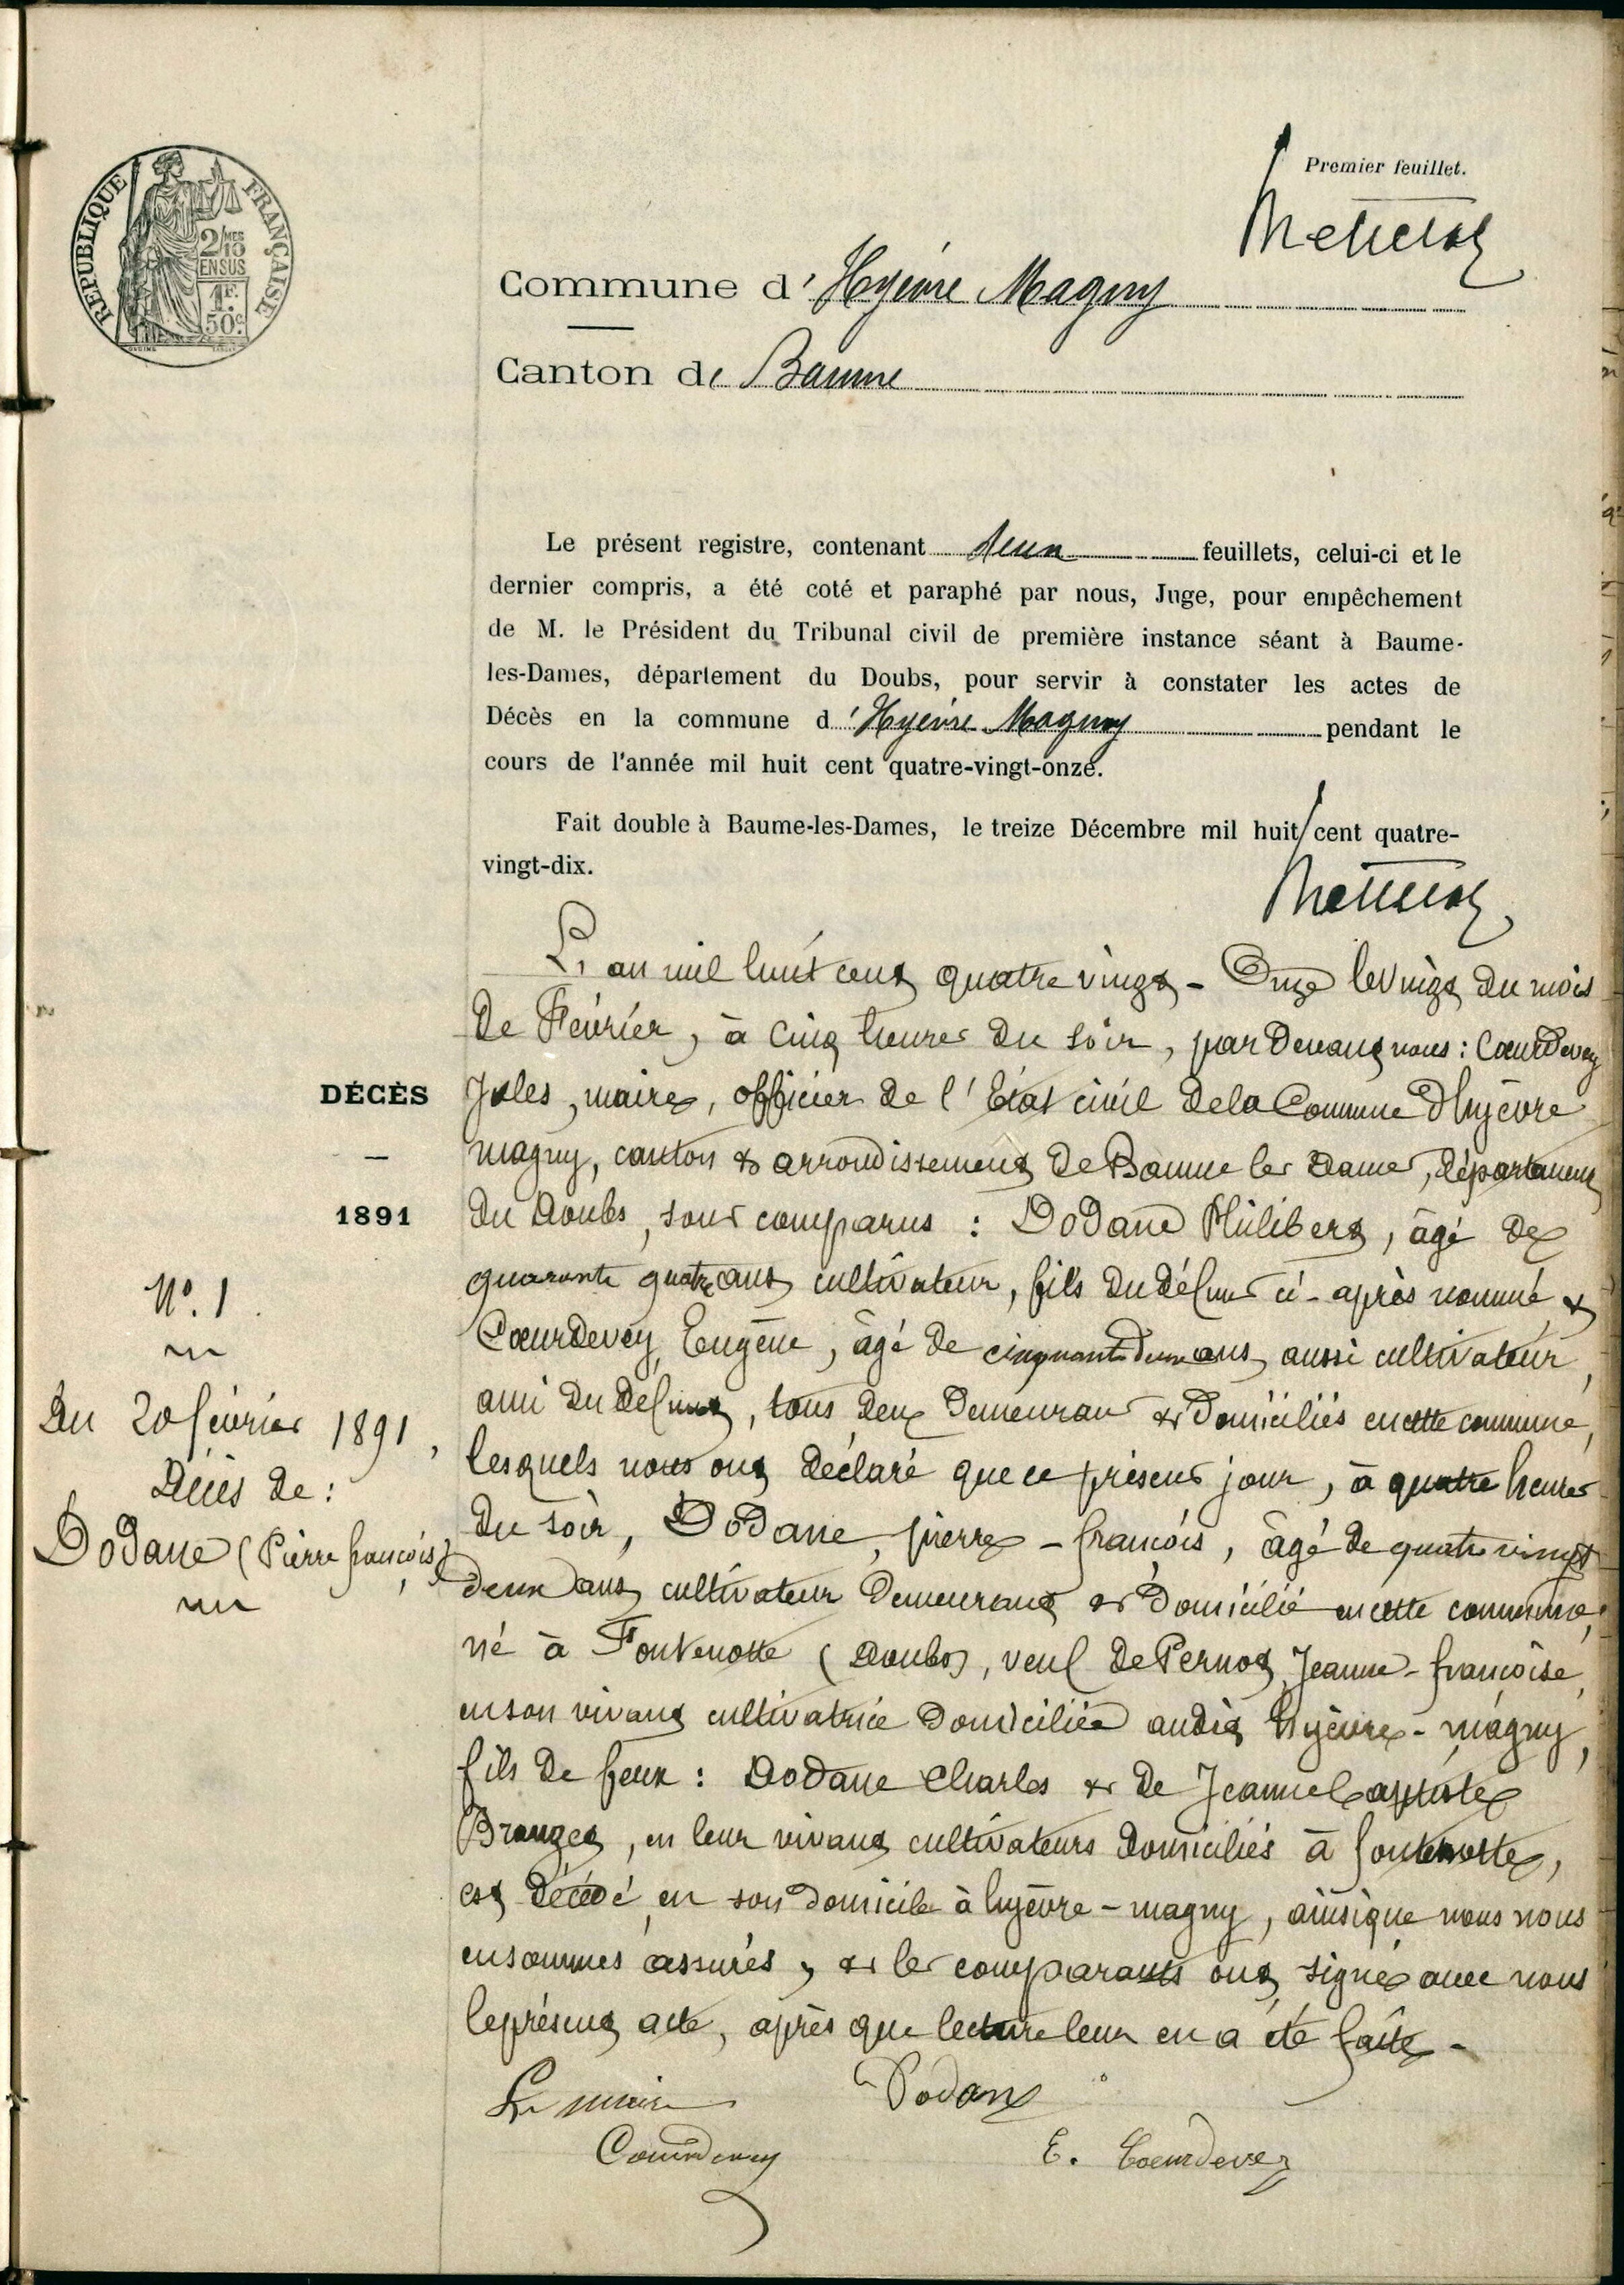 REPUBLIQUE FRANÇAISE
2/10 MES
EN SUS
1F.
50c.
Premier feuillet.
Commune d'Hyèvre Magny
Canton de Baume
Le présent registre, contenant deux feuillets, celui-ci et le
dernier compris, a été coté et paraphé par nous, Juge, pour empêchement
de M. le Président du Tribunal civil de première instance séant à Baume-
les-Dames, département du Doubs, pour servir à constater les actes de
Décès en la commune d'Hyèvre Magny pendant le
cours de l'année mil huit cent quatre-vingt-onze.
Fait double à Baume-les-Dames, le treize Décembre mil huit cent quatre-
vingt-dix.
DÉCÈS
—
1891
N°. 1
Du 20 février 1891,
Décès de :
Dodane (Pierre françois)
L'an mil huit cent quatre vingt - Onze le vingt du mois
de Février, à cinq heures du soir, par devant nous : Coeurdevey
Jules, maire, officier de l'Etat civil de la Commune d'hyèvre
magny, canton & arrondissement de Baume les Dames, département
du Doubs, sont comparus : Dodane Philibert, âgé de
quarante quatre ans cultivateur, fils du défunt ci-après nommé, &
Coeurdevey, Eugène, âgé de cinquante deux ans, aussi cultivateur,
ami du défunt, tous deux demeurant & domiciliés en cette commune,
lesquels nous ont déclaré que ce présent jour, à quatre heures
du soir, Dodane, pierre - françois, âgé de quatre vingt
deux ans cultivateur demeurant & domicilié en cette commune,
né à Fontenotte (Doubs), veuf de Pernot, Jeanne - françoise,
en son vivant cultivatrice domiciliée audit hyèvre - magny,
fils de feux : Dodane Charles & de Jeanne baptiste
Branget, en leur vivant cultivateurs domiciliés à fontenotte,
est décédé en son domicile à hyèvre - magny, ainsi que nous nous
en sommes assurés, & les comparants ont signé avec nous
le présent acte, après que lecture leur en a été faite -
Le maire
Dodane
Coeurdevey
E. Coeurdevey